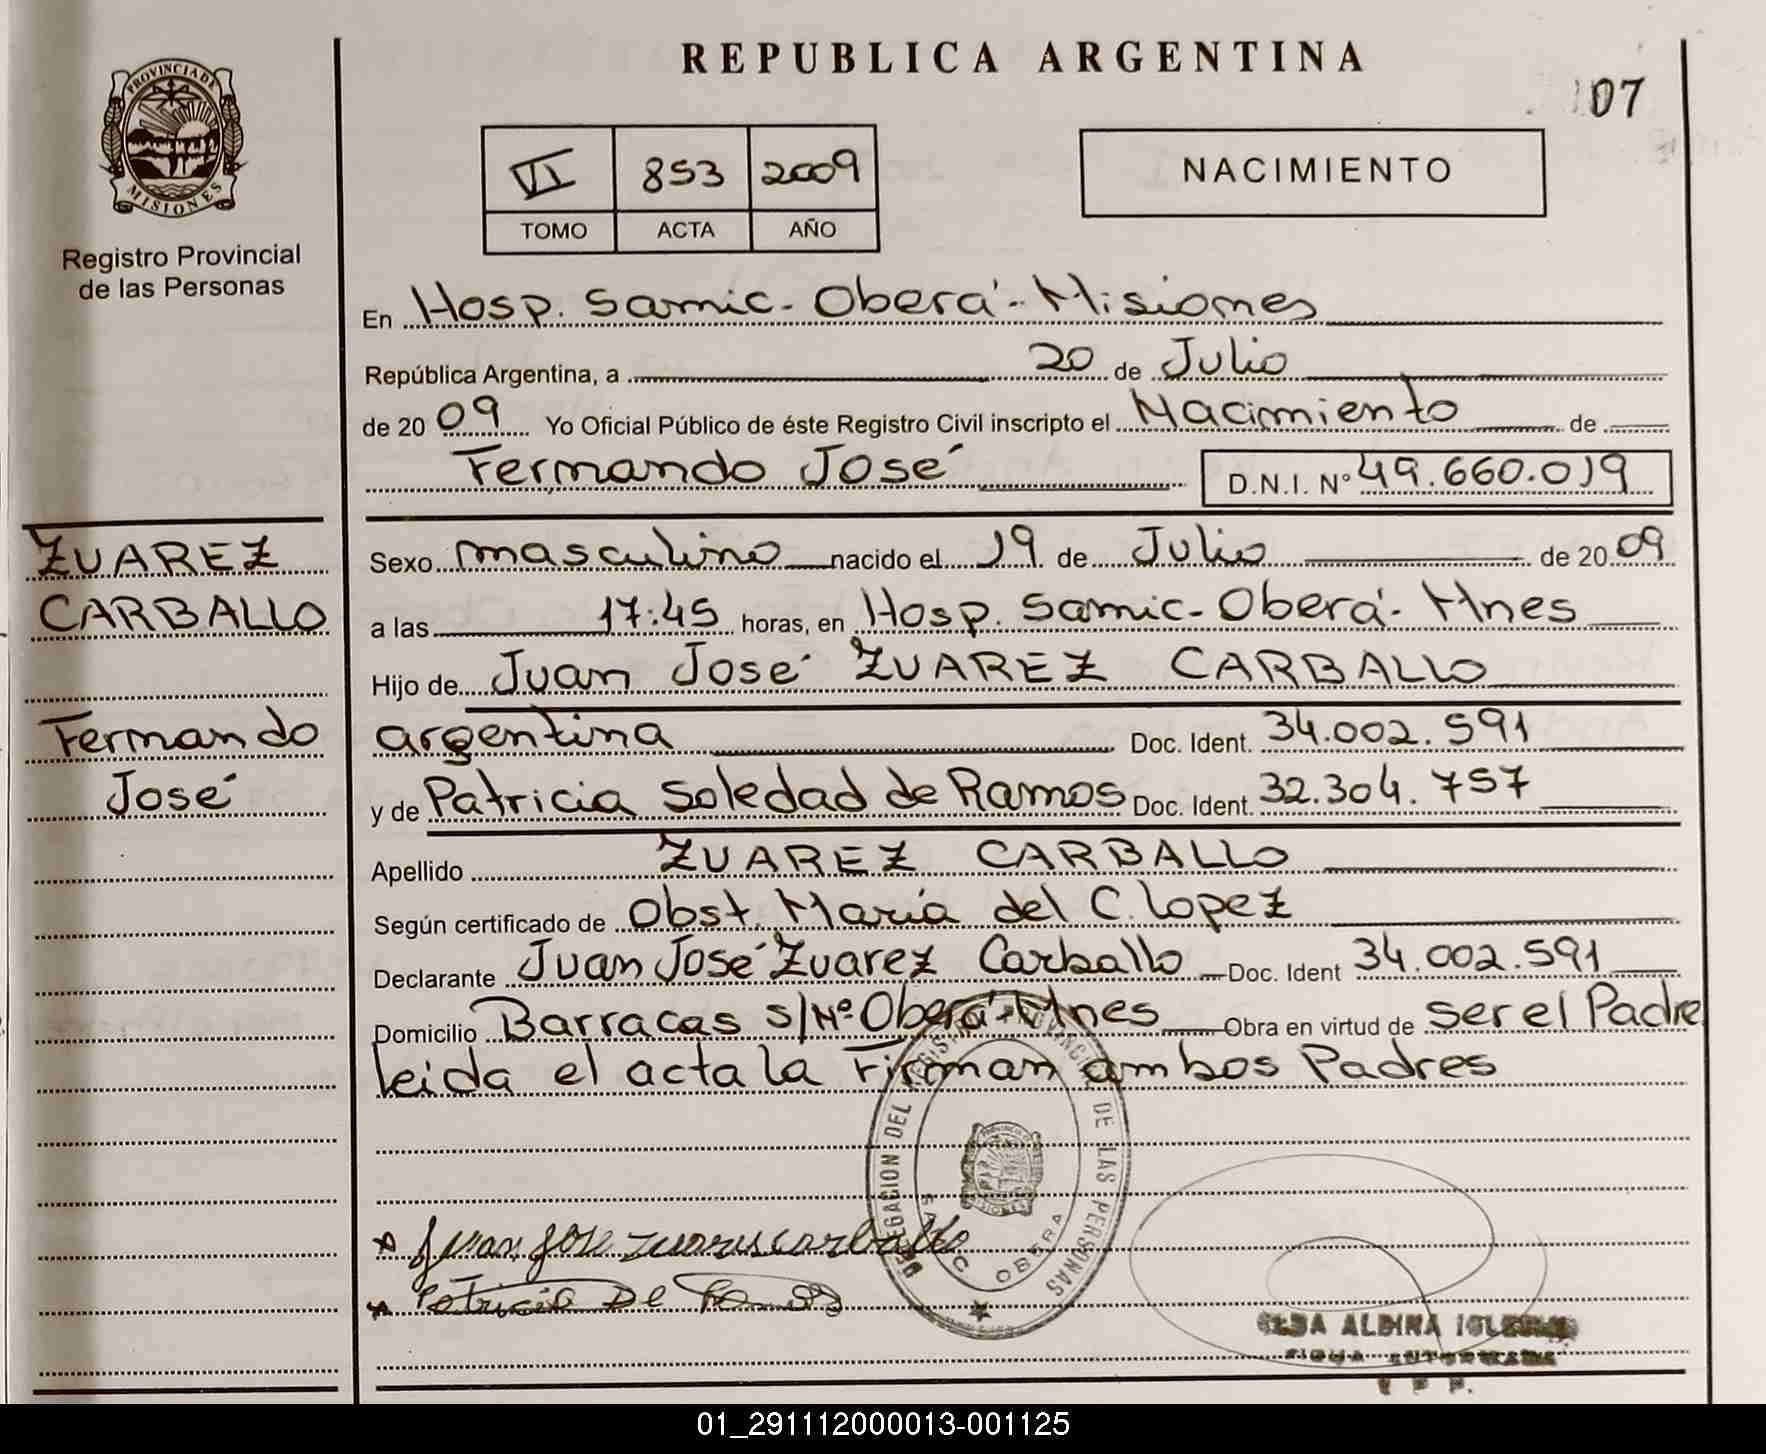 REPUBLICA ARGENTINA
107
PROVINCIA DE
MISIONES
Registro Provincial
de las Personas
VI 853 2009
TOMO ACTA AÑO
NACIMIENTO
En Hosp. Samic - Oberá - Misiones
República Argentina, a 20 de Julio
de 2009 Yo Oficial Público de éste Registro Civil inscripto el Nacimiento de
Fernando José D.N.I. Nº 49.660.019
ZUAREZ
CARBALLO
Fernando
José
Sexo masculino nacido el 19 de Julio de 2009
a las 17:45 horas, en Hosp. Samic - Oberá - Mnes
Hijo de Juan José ZUAREZ CARBALLO
argentina Doc. Ident. 34.002.591
y de Patricia Soledad de Ramos Doc. Ident. 32.304.757
Apellido ZUAREZ CARBALLO
Según certificado de Obst. María del C. Lopez
Declarante Juan José Zuarez Carballo Doc. Ident 34.002.591
Domicilio Barracas s/Nº Oberá - Mnes Obra en virtud de ser el Padre
leida el acta la Firman ambos Padres
DELEGACION DEL REGISTRO PROVINCIAL DE LAS PERSONAS
OBERA
Juan jose zuares carballo
Patricia De Ramos
ALBINA
01_291112000013-001125